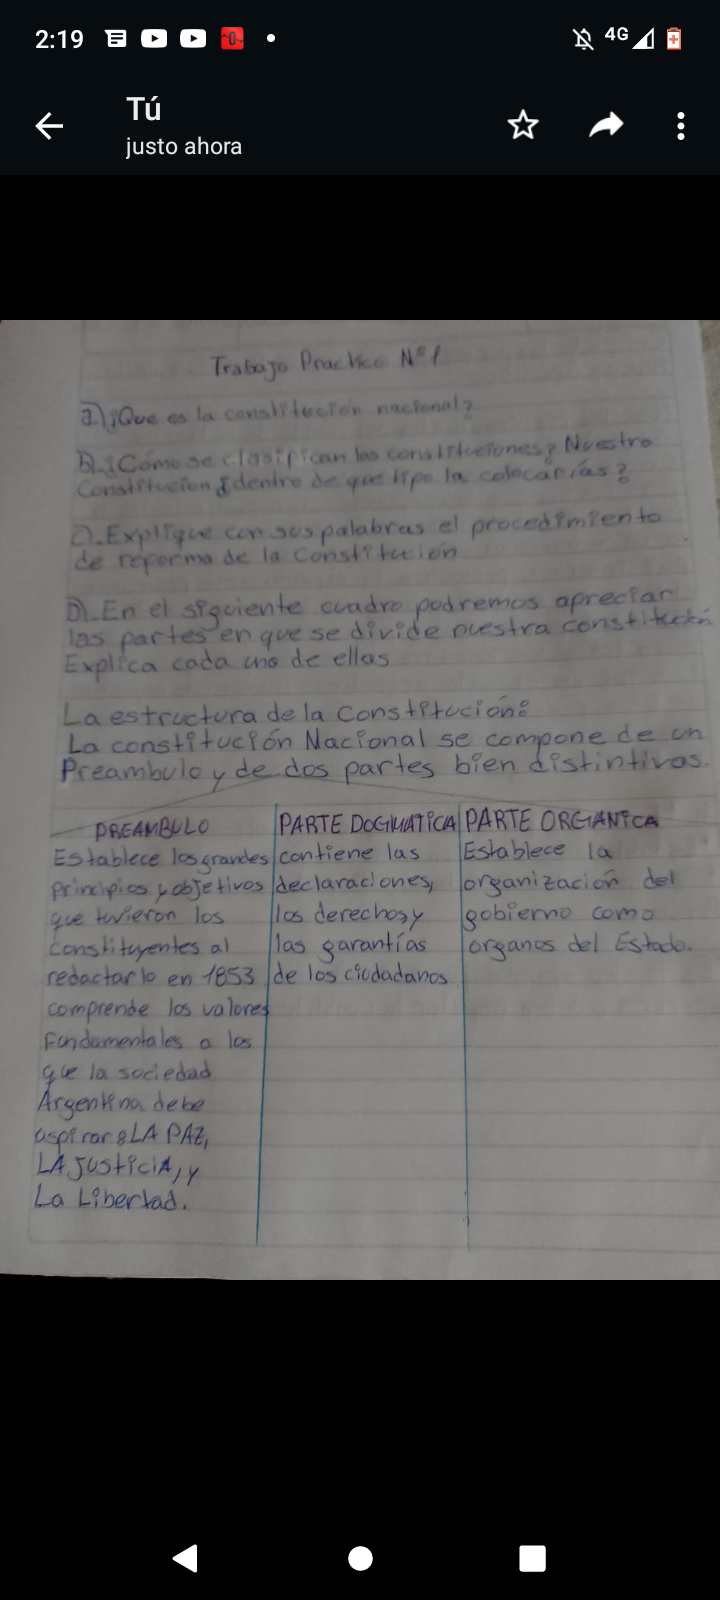 2:19
4G
Tú
justo ahora
Trabajo Practico Nº1
a) ¿Que es la constitución nacional?
B). ¿Cómo se clasifican las constituciones? Nuestra
Constitucion dentro de que tipo la colocarías?
C). Explique con sus palabras el procedimiento
de reforma de la Constitución
D). En el siguiente cuadro podremos apreciar
las partes en que se divide nuestra constitución
Explica cada una de ellas
La estructura de la Constitución:
La constitución Nacional se compone de un
Preambulo y de dos partes bien distintivas.
PREAMBULO PARTE DOGMATICA PARTE ORGANICA
Establece los grandes
principios y objetivos
que tuvieron los
constituyentes al
redactarlo en 1853
comprende los valores
Fundamentales a los
que la sociedad
Argentina debe
aspirar: LA PAZ,
LA JUSTICIA, y
La Libertad.
contiene las
declaraciones,
los derechos y
las garantías
de los ciudadanos
Establece la
organización del
gobierno como
organos del Estado.